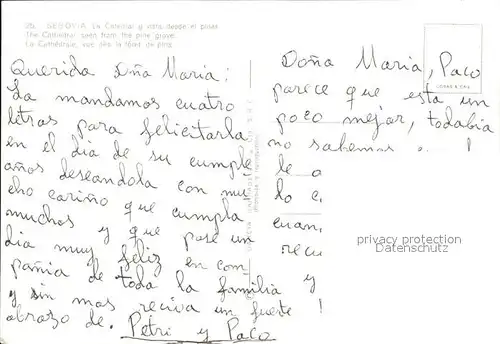 SEGOVIA La Catedral y vista desde el pinar
The Cathedral seen from the pine grove
La Cathédrale, vue dès la fôret de pins
Querida Doña Maria:
La mandamos cuatro
letras para felicitarla
en el dia de su cumple
años deseandola con mu
cho cariño que cumpla
muchos y que pase un
dia muy feliz en com
pañia de toda la familia y
y sin mas reciva un fuerte
abrazo de. Petri y Paco
Doña Maria, Paco
parece que esta un
poco mejor, todabia
no sabemos
le
lo
cuan
recu
!
privacy protection
Datenschutz